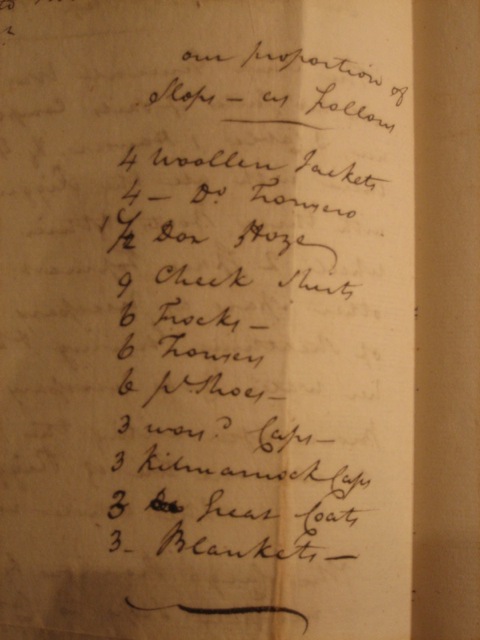 our proportion of
Slops - as follows
4 Woollen Jackets
4 - Do Trousers
1 1/2 Doz Hoze
9 Check Shirts
6 Frocks -
6 Trousers
6 pr Shoes -
3 wors.d Caps -
3 Kilmarnock Caps
3 Great Coats
3 - Blankets -